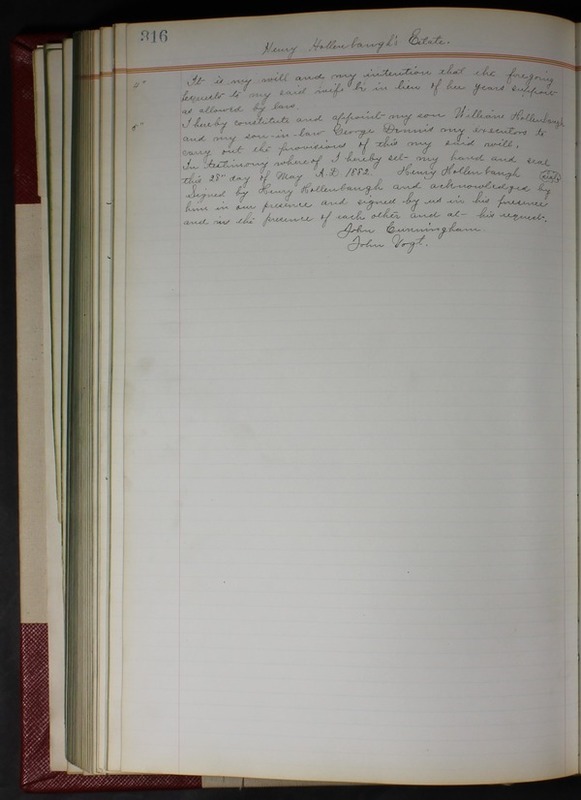 316
Henry Hollenbaugh's Estate.
4" It is my will and my intention that the foregoing
bequests to my said wife be in lieu of her years support
as allowed by law.
5" I hereby constitute and appoint my son William Hollenbaugh
and my son-in-law George Dennis my executors to
carry out the provisions of this my said will.
In testimony whereof I hereby set my hand and seal
this 28" day of May A.D. 1882. Henry Hollenbaugh (seal)
Signed by Henry Hollenbaugh and acknowledged by
him in our presence and signed by us in his presence
and in the presence of each other and at his request.
John Cunningham.
John Vogt.